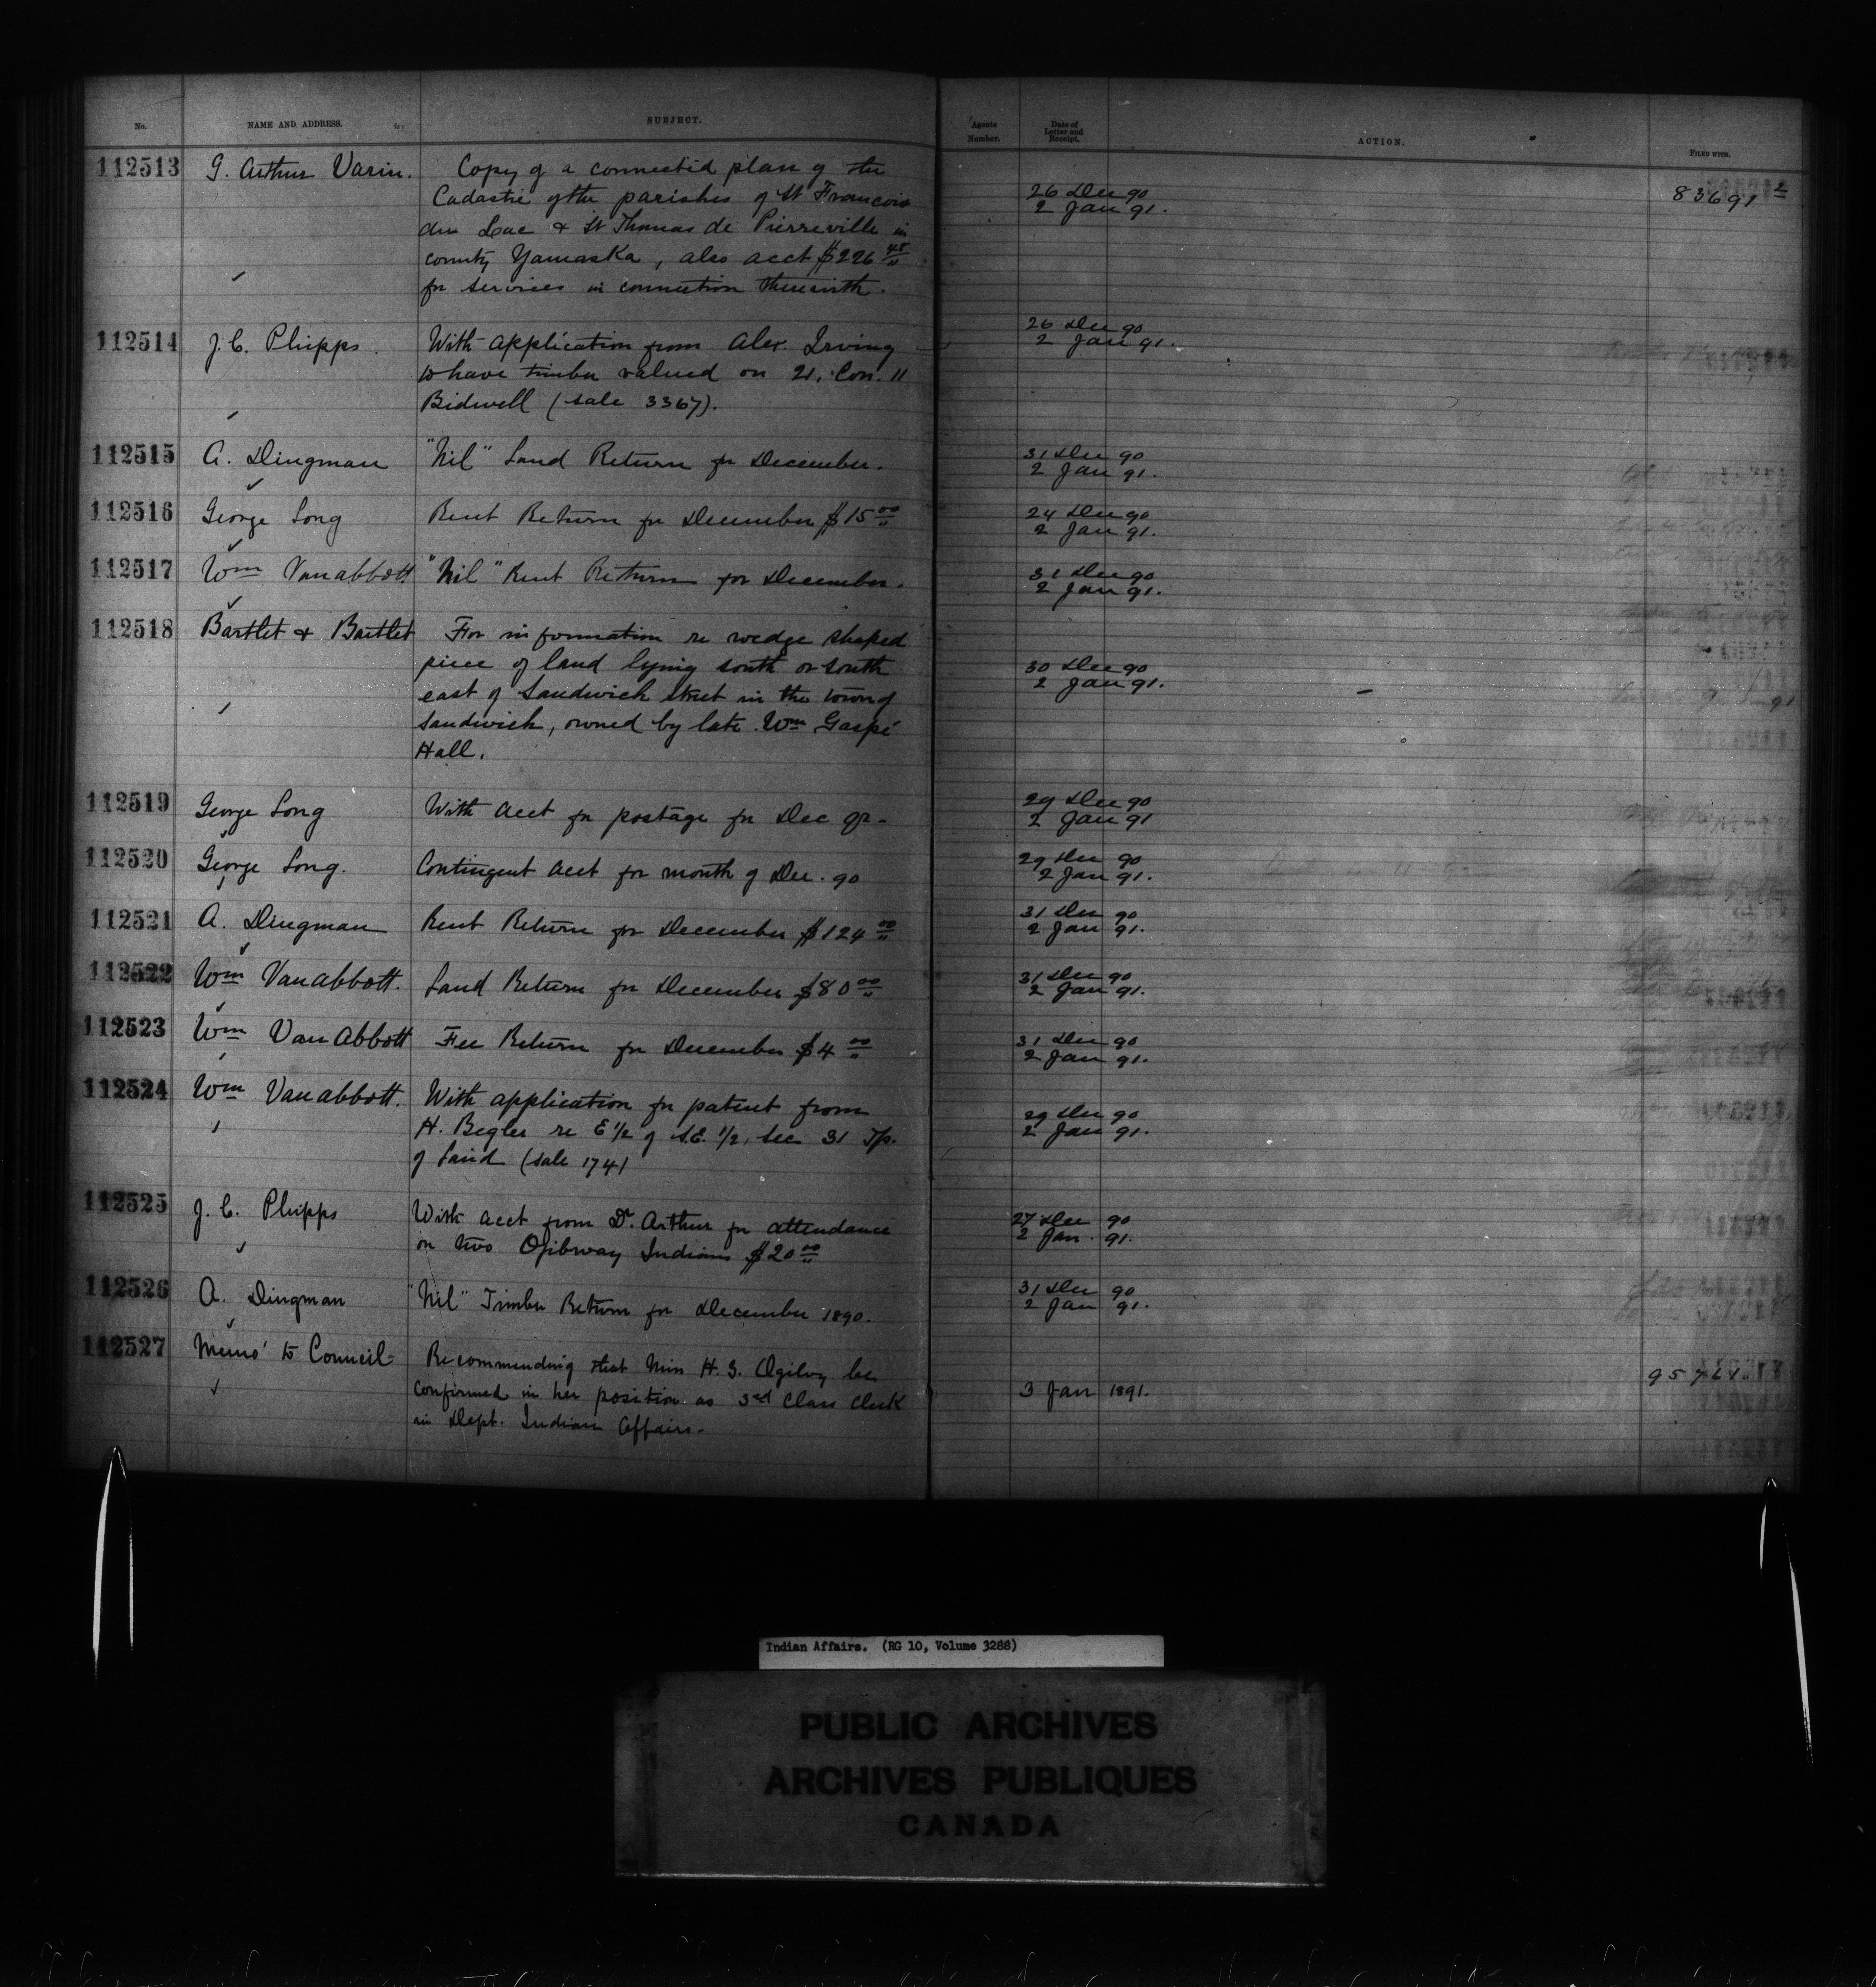 No. NAME AND ADDRESS. SUBJECT. Agents Number. Date of Letter and Receipt. ACTION. FILED WITH.
112513 G. Arthur Varin. Copy of a connected plan of the
Cadastre of the parishes of St Francois 26 Dec 90 83691 2
du Lac & St Thomas de Pierreville in 2 Jan 91.
county Yamaska, also acct $226 48
for services in connection therewith.
112514 J. C. Phipps. With application from Alex. Irving 26 Dec 90
to have timber valued on 21, Con. 11 2 Jan 91.
Bidwell (sale 3367).
112515 A. Dingman "Nil" Land Return for December. 31 Dec 90
2 Jan 91.
112516 George Long Rent Return for December $15 00 24 Dec 90
2 Jan 91.
112517 Wm Van abbott "Nil" Rent Return for December. 31 Dec 90
2 Jan 91.
112518 Bartlet & Bartlet For information re wedge shaped
piece of land lying south or south 30 Dec 90
east of Sandwich street in the town of 2 Jan 91.
Sandwich, owned by late Wm Gaspé
Hall.
112519 George Long With acct for postage for Dec qr. 29 Dec 90
2 Jan 91
112520 George Long. Contingent acct for month of Dec. 90 29 Dec 90
2 Jan 91.
112521 A. Dingman Rent Return for December $124 00 31 Dec 90
2 Jan 91.
112522 Wm Van abbott. Land Return for December $80 00 31 Dec 90
2 Jan 91.
112523 Wm Van Abbott Fee Return for December $4 00 31 Dec 90
2 Jan 91.
112524 Wm Van abbott. With application for patent from 29 Dec 90
H. Begler re E 1/2 of S.E. 1/2, sec 31 Tp. 2 Jan 91.
of Laird (sale 1741
112525 J. C. Phipps With acct from Dr. Arthur for attendance 27 Dec 90
on two Ojibway Indians $20 00 2 Jan. 91.
112526 A. Dingman "Nil" Timber Return for December 1890. 31 Dec 90
2 Jan 91.
112527 Memo' to Council Recommending that Miss H. G. Ogilvy be
confirmed in her position as 3rd Class Clerk 3 Jan 1891.
in Dept. Indian Affairs.
Indian Affairs. (RG 10, Volume 3288)
PUBLIC ARCHIVES
ARCHIVES PUBLIQUES
CANADA